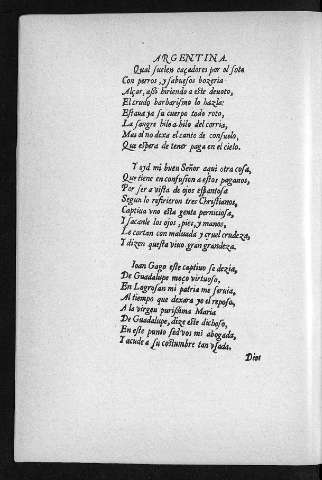 ARGENTINA.
Qual suelen caçadores por el soto
Con perros, y sabuesos bozeria
Alçar, assi hiriendo a este deuoto,
El crudo barbarismo lo hazia:
Estaua ya su cuerpo todo roto,
La sangre hilo a hilo del corria,
Mas el no dexa el canto de consuelo,
Que espera de tener paga en el cielo.
Y oyd mi buen Señor aqui otra cosa,
Que tiene en confusion a estos paganos,
Por ser a vista de ojos espantosa
Segun lo refirieron tres Christianos,
Captiua vno esta gente perniciosa,
Y sacanle los ojos, pies, y manos,
Le cortan con maluada y cruel crudeza,
Y dizen questa viuo gran grandeza.
Ioan Gago este captiuo se dezia,
De Guadalupe moço virtuoso,
En Lagrosan mi patria me seruia,
Al tiempo que dexara yo el reposo,
A la virgen purissima Maria
De Guadalupe, dize este dichoso,
En este punto sed vos mi abogada,
Y acude a su costumbre tan vsada.
Dios